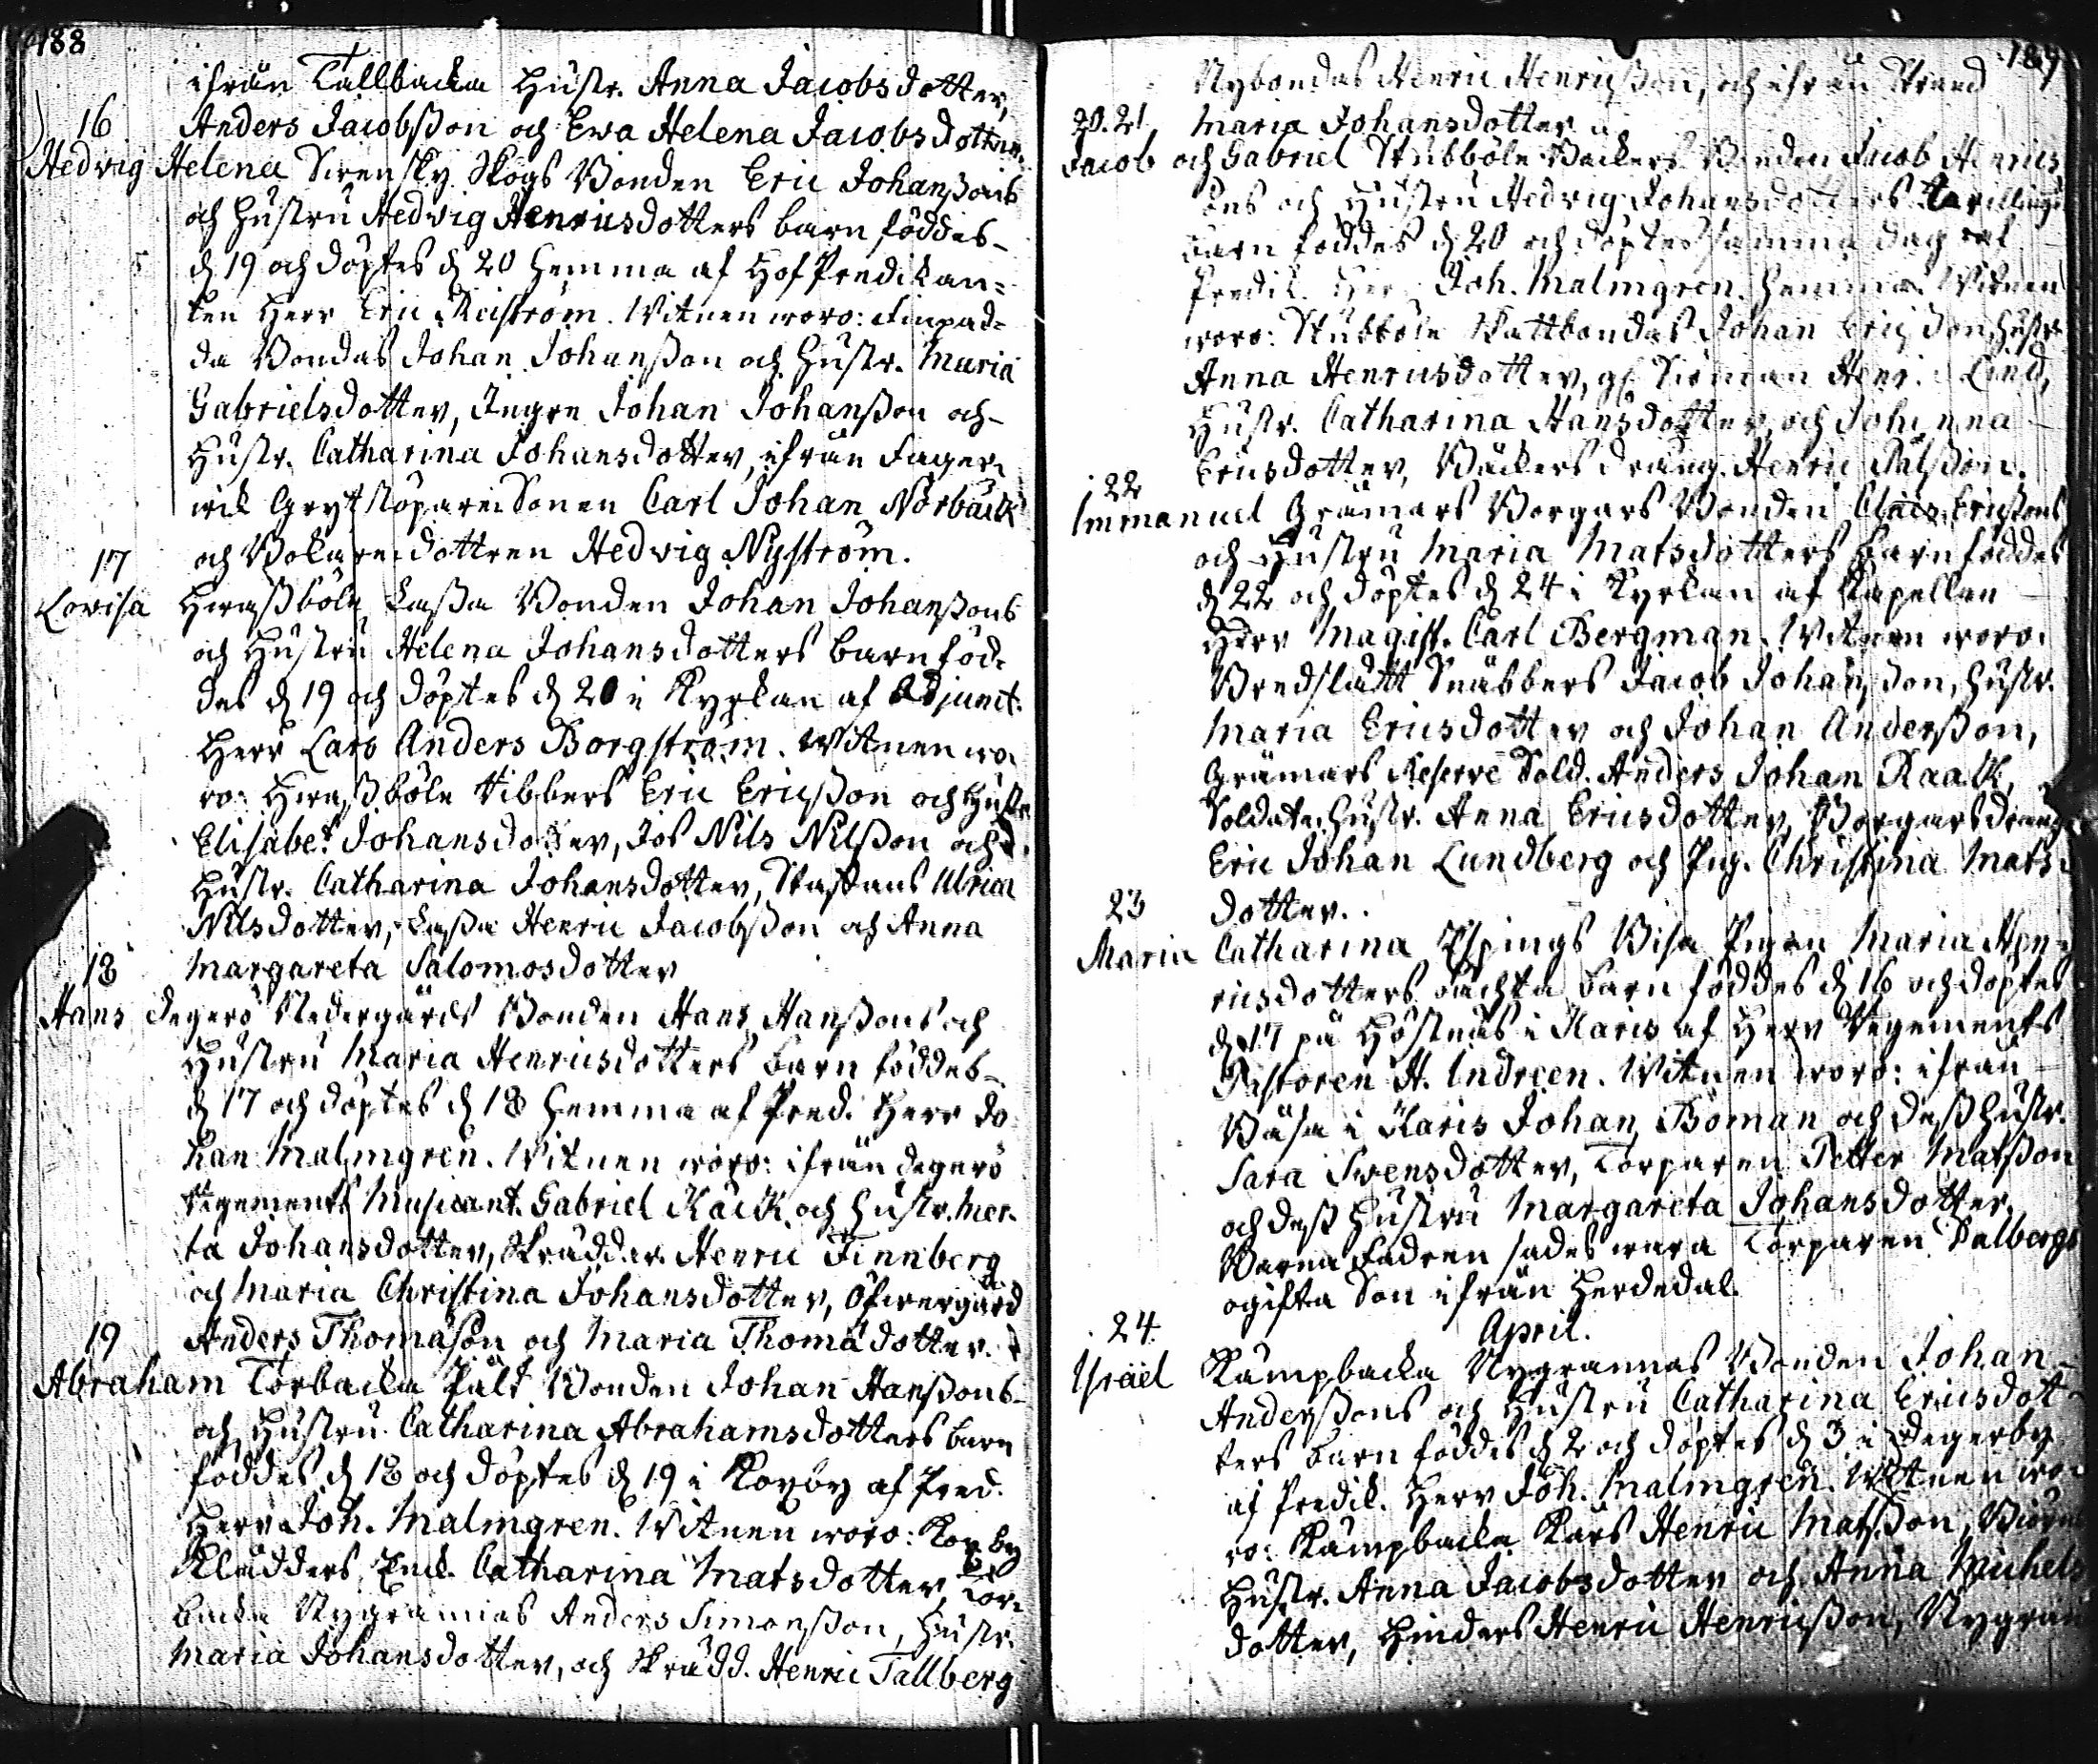 188
ifrån Tallbacka Hustr. Anna Jacobsdotter,
16 Anders Jacobsson och Ewa Helena Jacobsdotter
Hedvig Helena Svenskby Skogs Bonden Eric Johanssons
och Hustru Hedvig Henricsdotters barn föddes
d 19 och döptes d 20 hemma af Hof Predikan-
ten Herr Eric Reiström. Witnen woro: Finpad-
da Bondas Johan Johansson och Hustr. Maria
Gabrielsdotter, Johan Johansson och
Hustr. Catharina Johansdotter, ifrån Fager-
wik Grytstöpare Sonen Carl Johan Norbäck
och dottren Hedwig Nyström.
17
Lovisa Lassa Bonden Johan Johanssons
och Hustru Helena Johansdotters barn föd-
des d 19 och döptes d 20 i Kyrkan af Adjunct.
Herr Lars Anders Borgström. Witnen wo-
ro: Tibbers Eric Ericsson och Hustr.
Elisabet Johansdotter, Jos Nils Nilsson och
Hustr. Catharina Johansdotter, Staffans Ulrica
Nilsdotter, Lassa Henric Jacobsson och Anna
18 Margareta Salomosdotter
Hans Degerö Nedergårds Bonden Hans Hanssons och
Hustru Maria Henricsdotters barn föddes
d 17 och döptes d 18 hemma af Pred. Herr Jo-
han Malmgren. Witnen woro: ifrån Degerö
Regements Musicant Gabriel Käck och Hustr. Mer-
ta Johansdotter, Skräddar. Henric Finnberg
och Maria Christina Johansdotter, Öfwergård
19 Anders Thomasson och Maria Thomadotter.
Abraham Torbacka Pält Bonden Johan Hanssons
och Hustru Catharina Abrahamsdotters barn
föddes d 18 och döptes d 19 i af Pred.
Herr Joh. Malmgren. Witnen woro:
Klädders Enk. Catharina Matsdotter, Tor-
backa Nygrannas Anders Simonsson, Hustr.
Maria Johansdotter, och Skrädd. Henric Tallberg
189
Nybondas Henric Henricsson, och ifrån Strand
20.21. Maria Johansdotter
Jacob och Gabriel Stubböle Backers Bonden Jacob Henrics-
sons och Hustru Hedvig Johansdotters Twillings
barn föddes d 20 och döptes samma dag af
Predik. Herr Joh. Malmgren hemma. Witnen
woro: Stubböle Skattbondas Johan Ericsson, Hustr.
Anna Henricsdotter, Henr. Lind,
Hustr. Catharina Hansdotter, och Johanna
Ericsdotter, Bäckers dräng. Henric Pålsson.
22
Immanuel Grämars Borgars Bonden Claes Ericssons
och Hustru Maria Matsdotters barn föddes
d 22 och döptes d 24 i Kyrkan af Capellan
Herr Magist. Carl Bergman. Witnen woro:
Bredslätt Snäbbers Jacob Johansson, Hustr.
Maria Ericsdotter och Johan Andersson,
Grämars Reserve Sold. Anders Johan Raask,
Soldate Hustr. Anna Ericsdotter, Borgars dräng
Eric Johan Lundberg och Pig. Christina Mats-
23 dotter.
Maria Catharina Espings Bisa Pigan Maria Hen-
ricsdotters oächta barn föddes d 16 och döptes
d 17 på Höstnäs i Karis af Herr Regements
Pastoren H. Indreen. Witnen woro: ifrån
Båsa i Karis Johan Boman och dess Hustr.
Sara Swensdotter, Torparen Petter Matsson
och dess Hustru Margareta Johansdotter.
Barna Fadren sades wara Torparen Dalbergs
ogifta Son ifrån Herdedal.
April.
24.
Israel Kämpbacka Nygrannas Bonden Johan
Anderssons och Hustru Catharina Ericsdot-
ters barn föddes d 2 och döptes d 3 i Degerby
af Predik. Herr Joh. Malmgren. Witnen wo-
ro: Kämpbacka Kärs Henric Matsson,
Hustr. Anna Jacobsdotter och Anna Michels
dotter, Hinders Henric Henricsson, Nygran